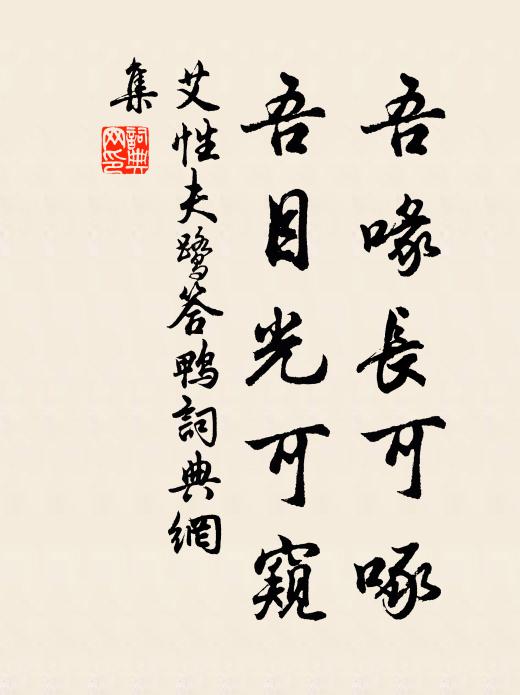 吾喙長可啄
吾目光可窺
艾性夫鷺答鴨詞典網
集
詞典網印